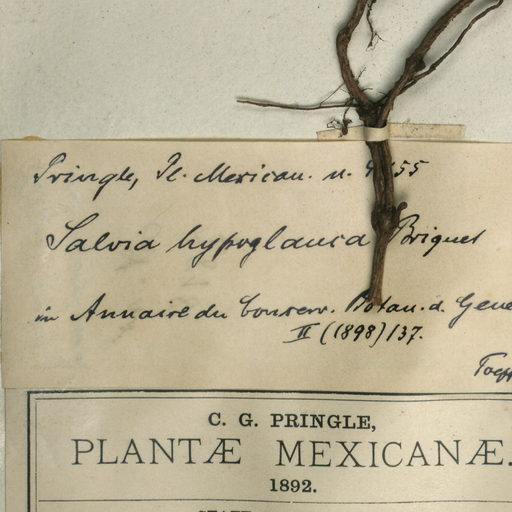 Pringle, Pl. Mexican. n. 4155
Salvia hypoglauca Briquet
in Annaire du Conserv. Botan. d. Gene
II (1898) 137.
C. G. PRINGLE,
PLANTÆ MEXICANÆ.
1892.